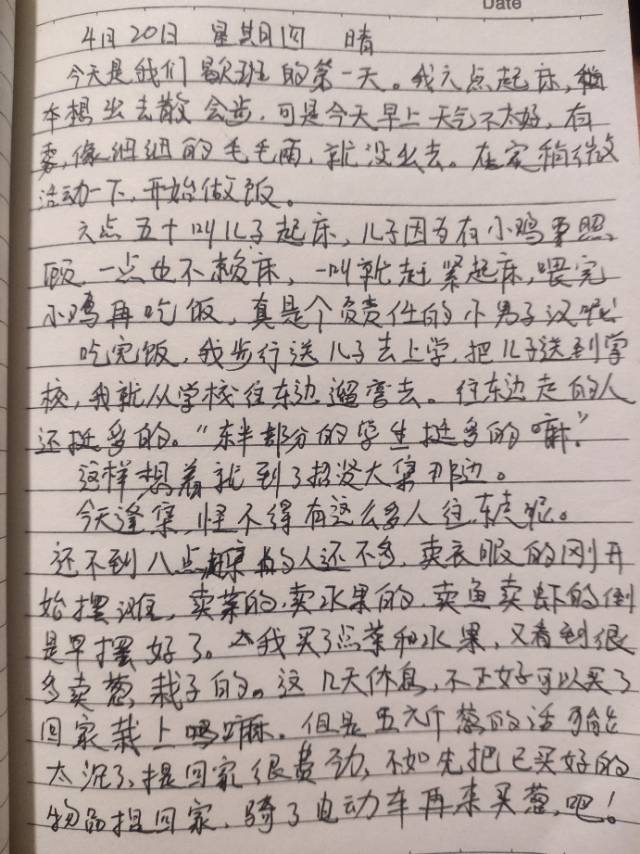 Date
4月20日 星期四 晴
今天是我们歇班的第一天。我六点起床,
本想出去散会步,可是今天早上天气不太好,有
雾,像细细的毛毛雨,就没出去。在家稍微
活动一下,开始做饭。
六点五十叫儿子起床,儿子因为有小鸡要照
顾,一点也不赖床,一叫就赶紧起床,喂完
小鸡再吃饭,真是个负责任的小男子汉呢
吃完饭,我步行送儿子去上学,把儿子送到学
校,我就从学校往东边遛弯去。往东边走的人
还挺多的。“东半部分的学生挺多的嘛”
这样想着就到了招没大集那边。
今天逢集,怪不得有这么多人往东走呢。
还不到八点,赶集的人还不多,卖衣服的刚开
始摆滩,卖菜的,卖水果的,卖鱼卖虾的倒
是早摆好了。我买了点菜和水果,又看到很
多卖葱栽子的。这几天休息,不正好可以买了
回家栽上吗嘛。但是五六斤葱的话
太沉了,提回家很费劲,不如先把已买好的
物品提回家,骑了电动车再来买葱吧!